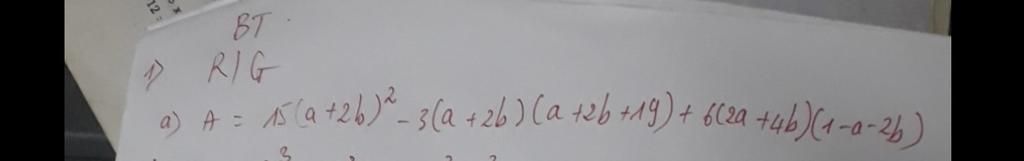 BT.
1) R/G
a) A = 15(a+2b)² - 3(a+2b)(a+2b+19) + 6(2a+4b)(1-a-2b)